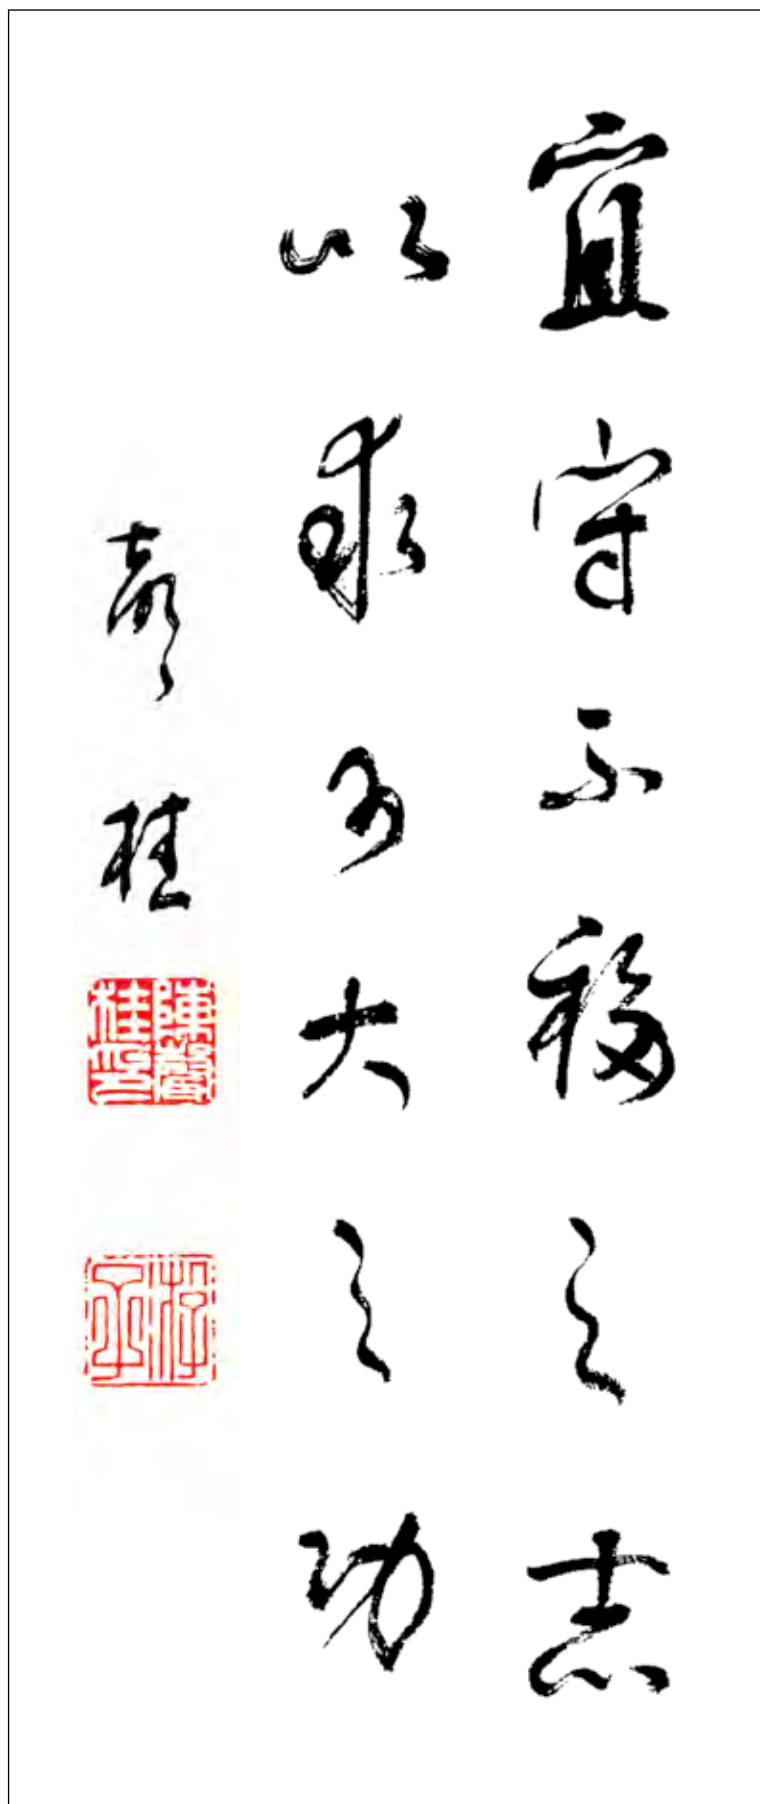 宜守不移之志
以求可大之功
聲桂
陳聲桂印